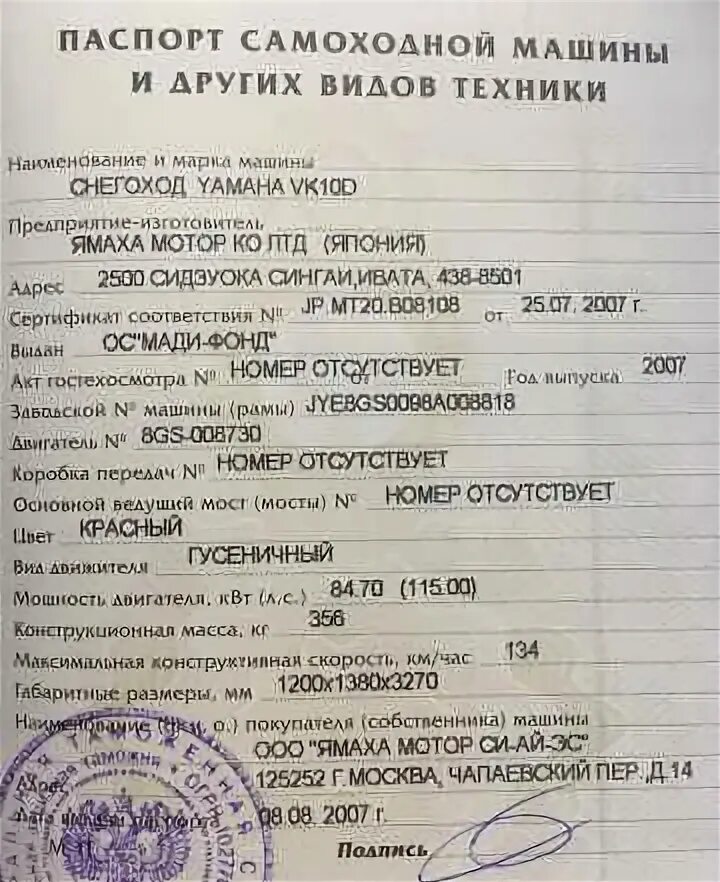 ПАСПОРТ САМОХОДНОЙ МАШИНЫ
И ДРУГИХ ВИДОВ ТЕХНИКИ
Наименование и марка машины
СНЕГОХОД YAMAHA VK10D
Предприятие-изготовитель
ЯМАХА МОТОР КО ЛТД (ЯПОНИЯ)
Адрес 2500 СИДЗУОКА СИНГАИ,ИВАТА, 438-8501
Сертификат соответствия № JP.MT20.B08108 от 25.07. 2007 г.
Выдан ОС"МАДИ-ФОНД"
Акт гостехосмотра № НОМЕР ОТСУТСТВУЕТ от Год выпуска 2007
Заводской № машины (рамы) JYE8GS0098A008818
Двигатель № 8GS-008730
Коробка передач № НОМЕР ОТСУТСТВУЕТ
Основной ведущий мост (мосты) № НОМЕР ОТСУТСТВУЕТ
Цвет КРАСНЫЙ
Вид движителя ГУСЕНИЧНЫЙ
Мощность двигателя, кВт (л.с.) 84.70 (115.00)
Конструкционная масса, кг 356
Максимальная конструктивная скорость, км/час 134
Габаритные размеры, мм 1200x1380x3270
Наименование (ф., и., о.) покупателя (собственника) машины
ООО "ЯМАХА МОТОР СИ-АЙ-ЭС"
Адрес 125252 Г.МОСКВА, ЧАПАЕВСКИЙ ПЕР.,Д.14
Дата выдачи паспорта 08.08. 2007 г.
М. П. Подпись
ТАМОЖЕННАЯ С
ТАМОЖНЯ * ОГРН 10277